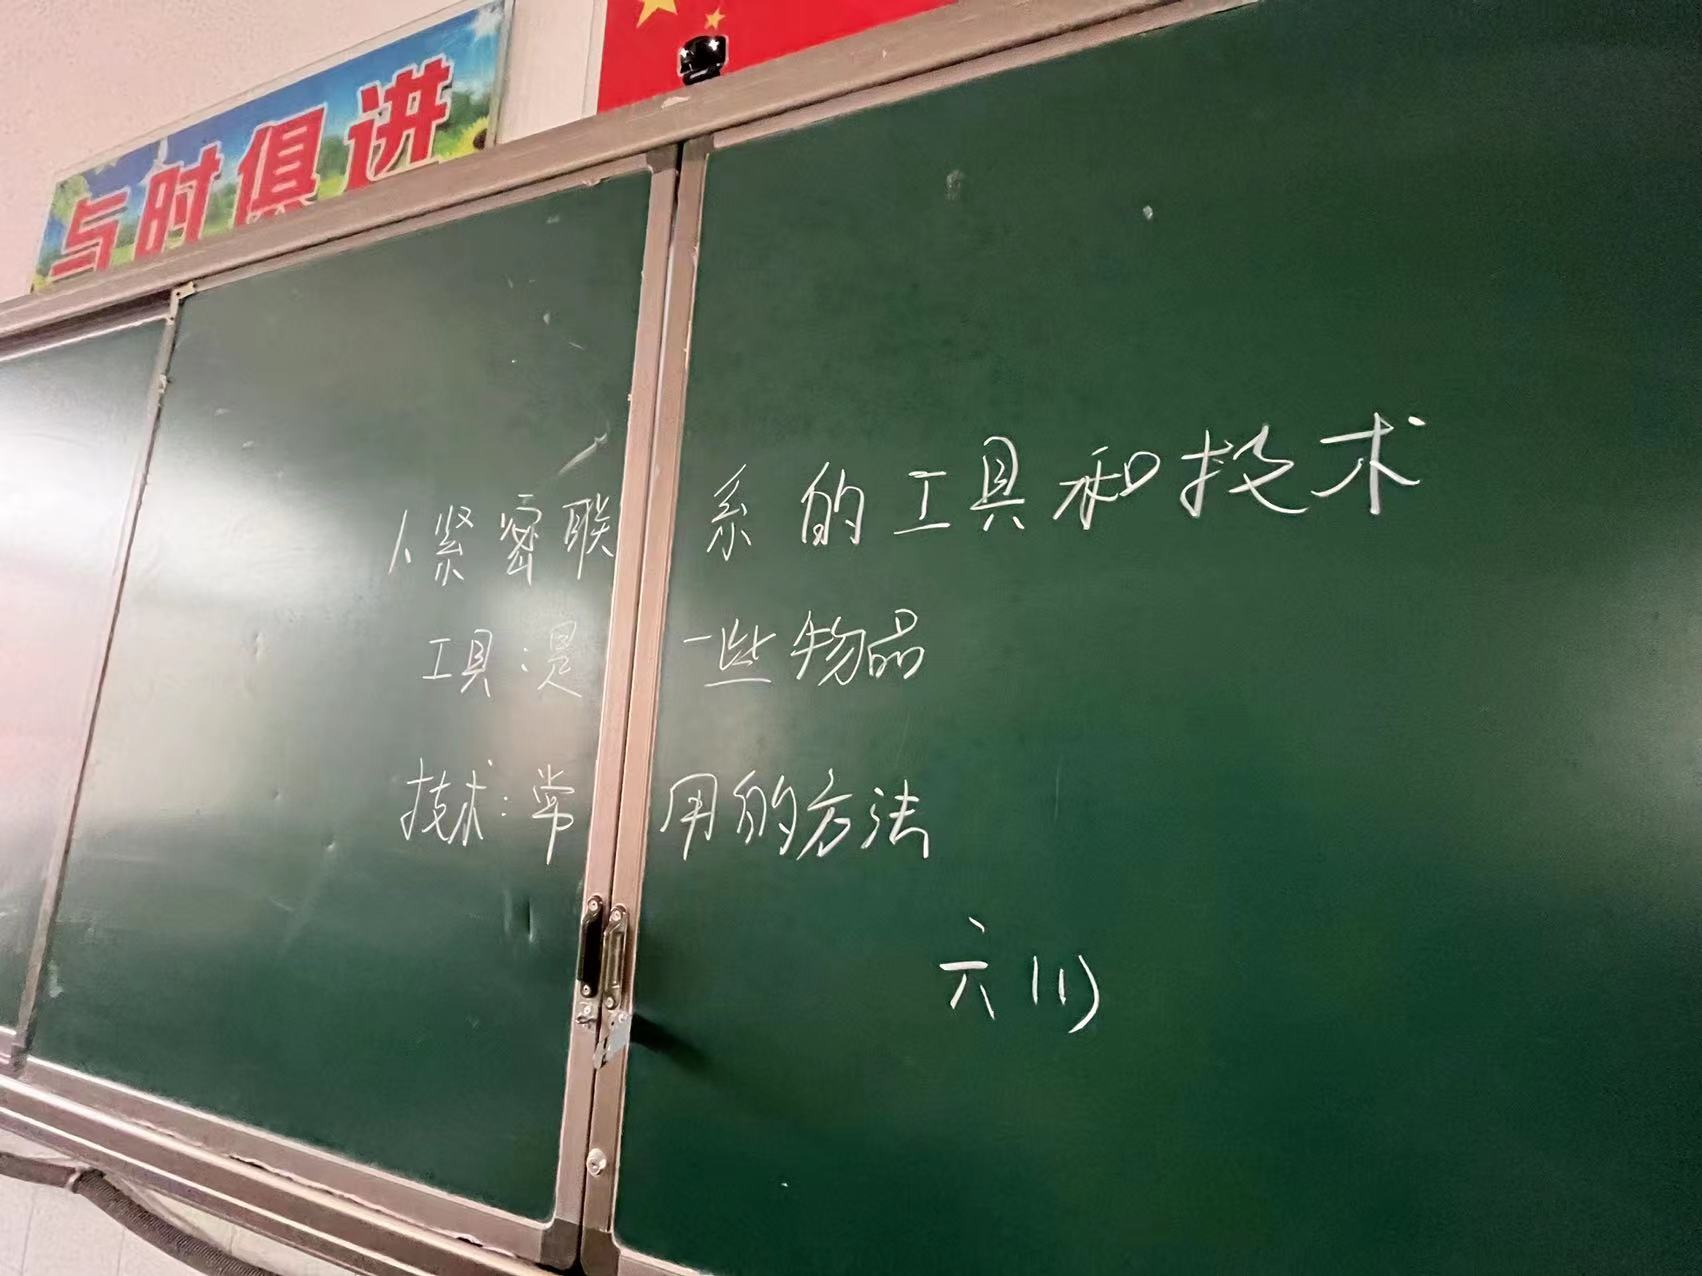 与时俱进
1、紧密联系的工具和技术
工具:是一些物品
技术:常用的方法
六(1)